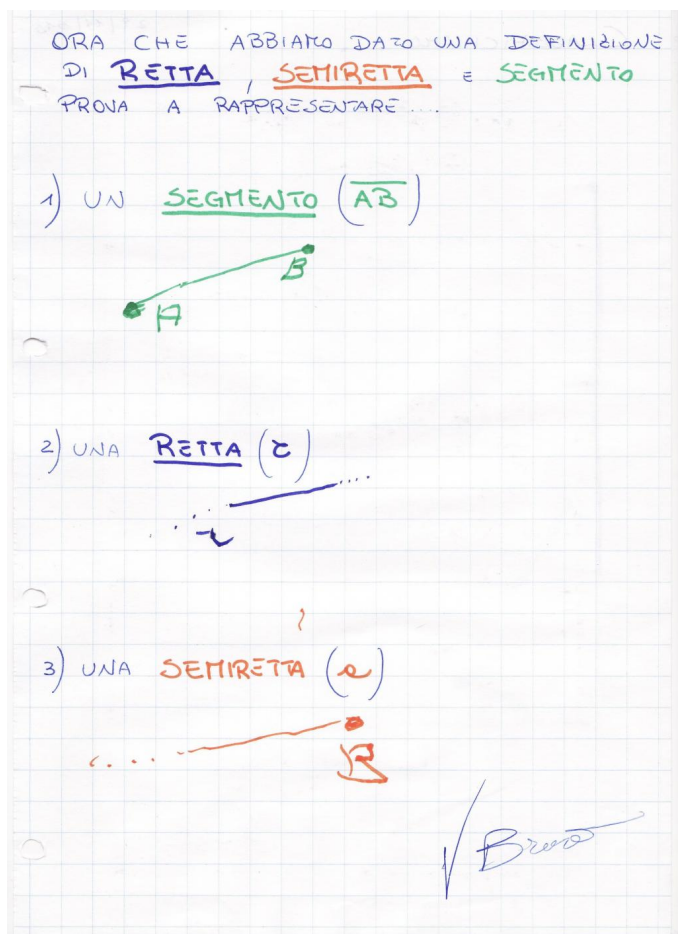 ORA CHE ABBIAMO DATO UNA DEFINIZIONE
DI RETTA, SEMIRETTA E SEGMENTO
PROVA A RAPPRESENTARE ....
1) UN SEGMENTO (AB)
B
A
2) UNA RETTA (r)
r
3) UNA SEMIRETTA (a)